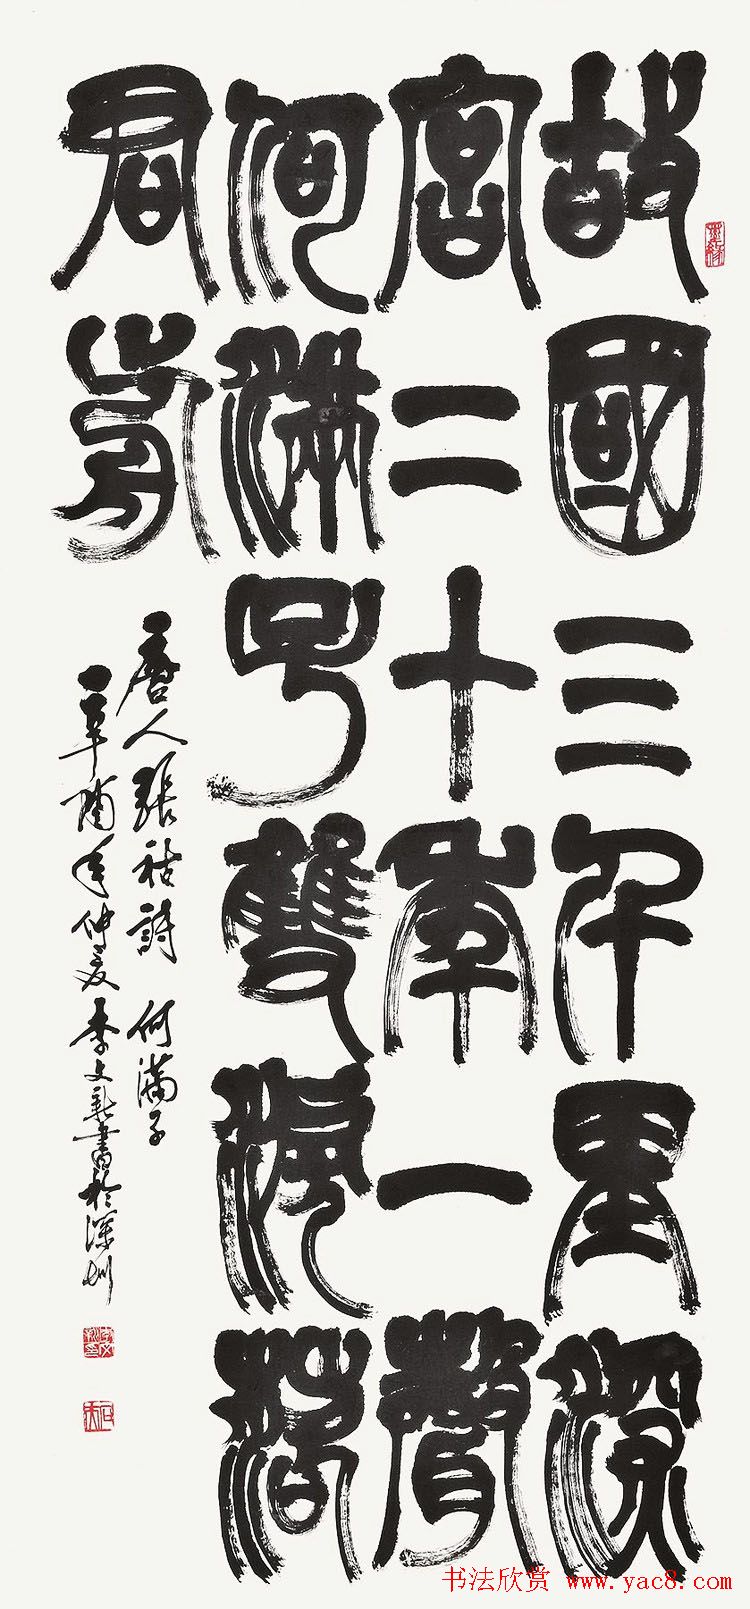 故國三千里深
宮二十年一聲
何滿子雙淚落
君前
唐人張祜詩 何滿子
年仲夏李文新書於深圳
墨緣
书法欣赏 www.yac8.com